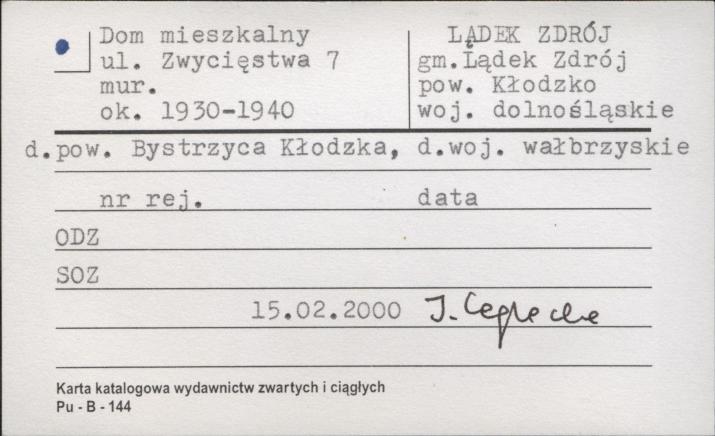 Dom mieszkalny
ul. Zwycięstwa 7
mur.
ok. 1930-1940
LĄDEK ZDRÓJ
gm.Lądek Zdrój
pow. Kłodzko
woj. dolnośląskie
d.pow. Bystrzyca Kłodzka, d.woj. wałbrzyskie
nr rej. data
ODZ
SOZ
15.02.2000 J.
Karta katalogowa wydawnictw zwartych i ciągłych
Pu - B - 144